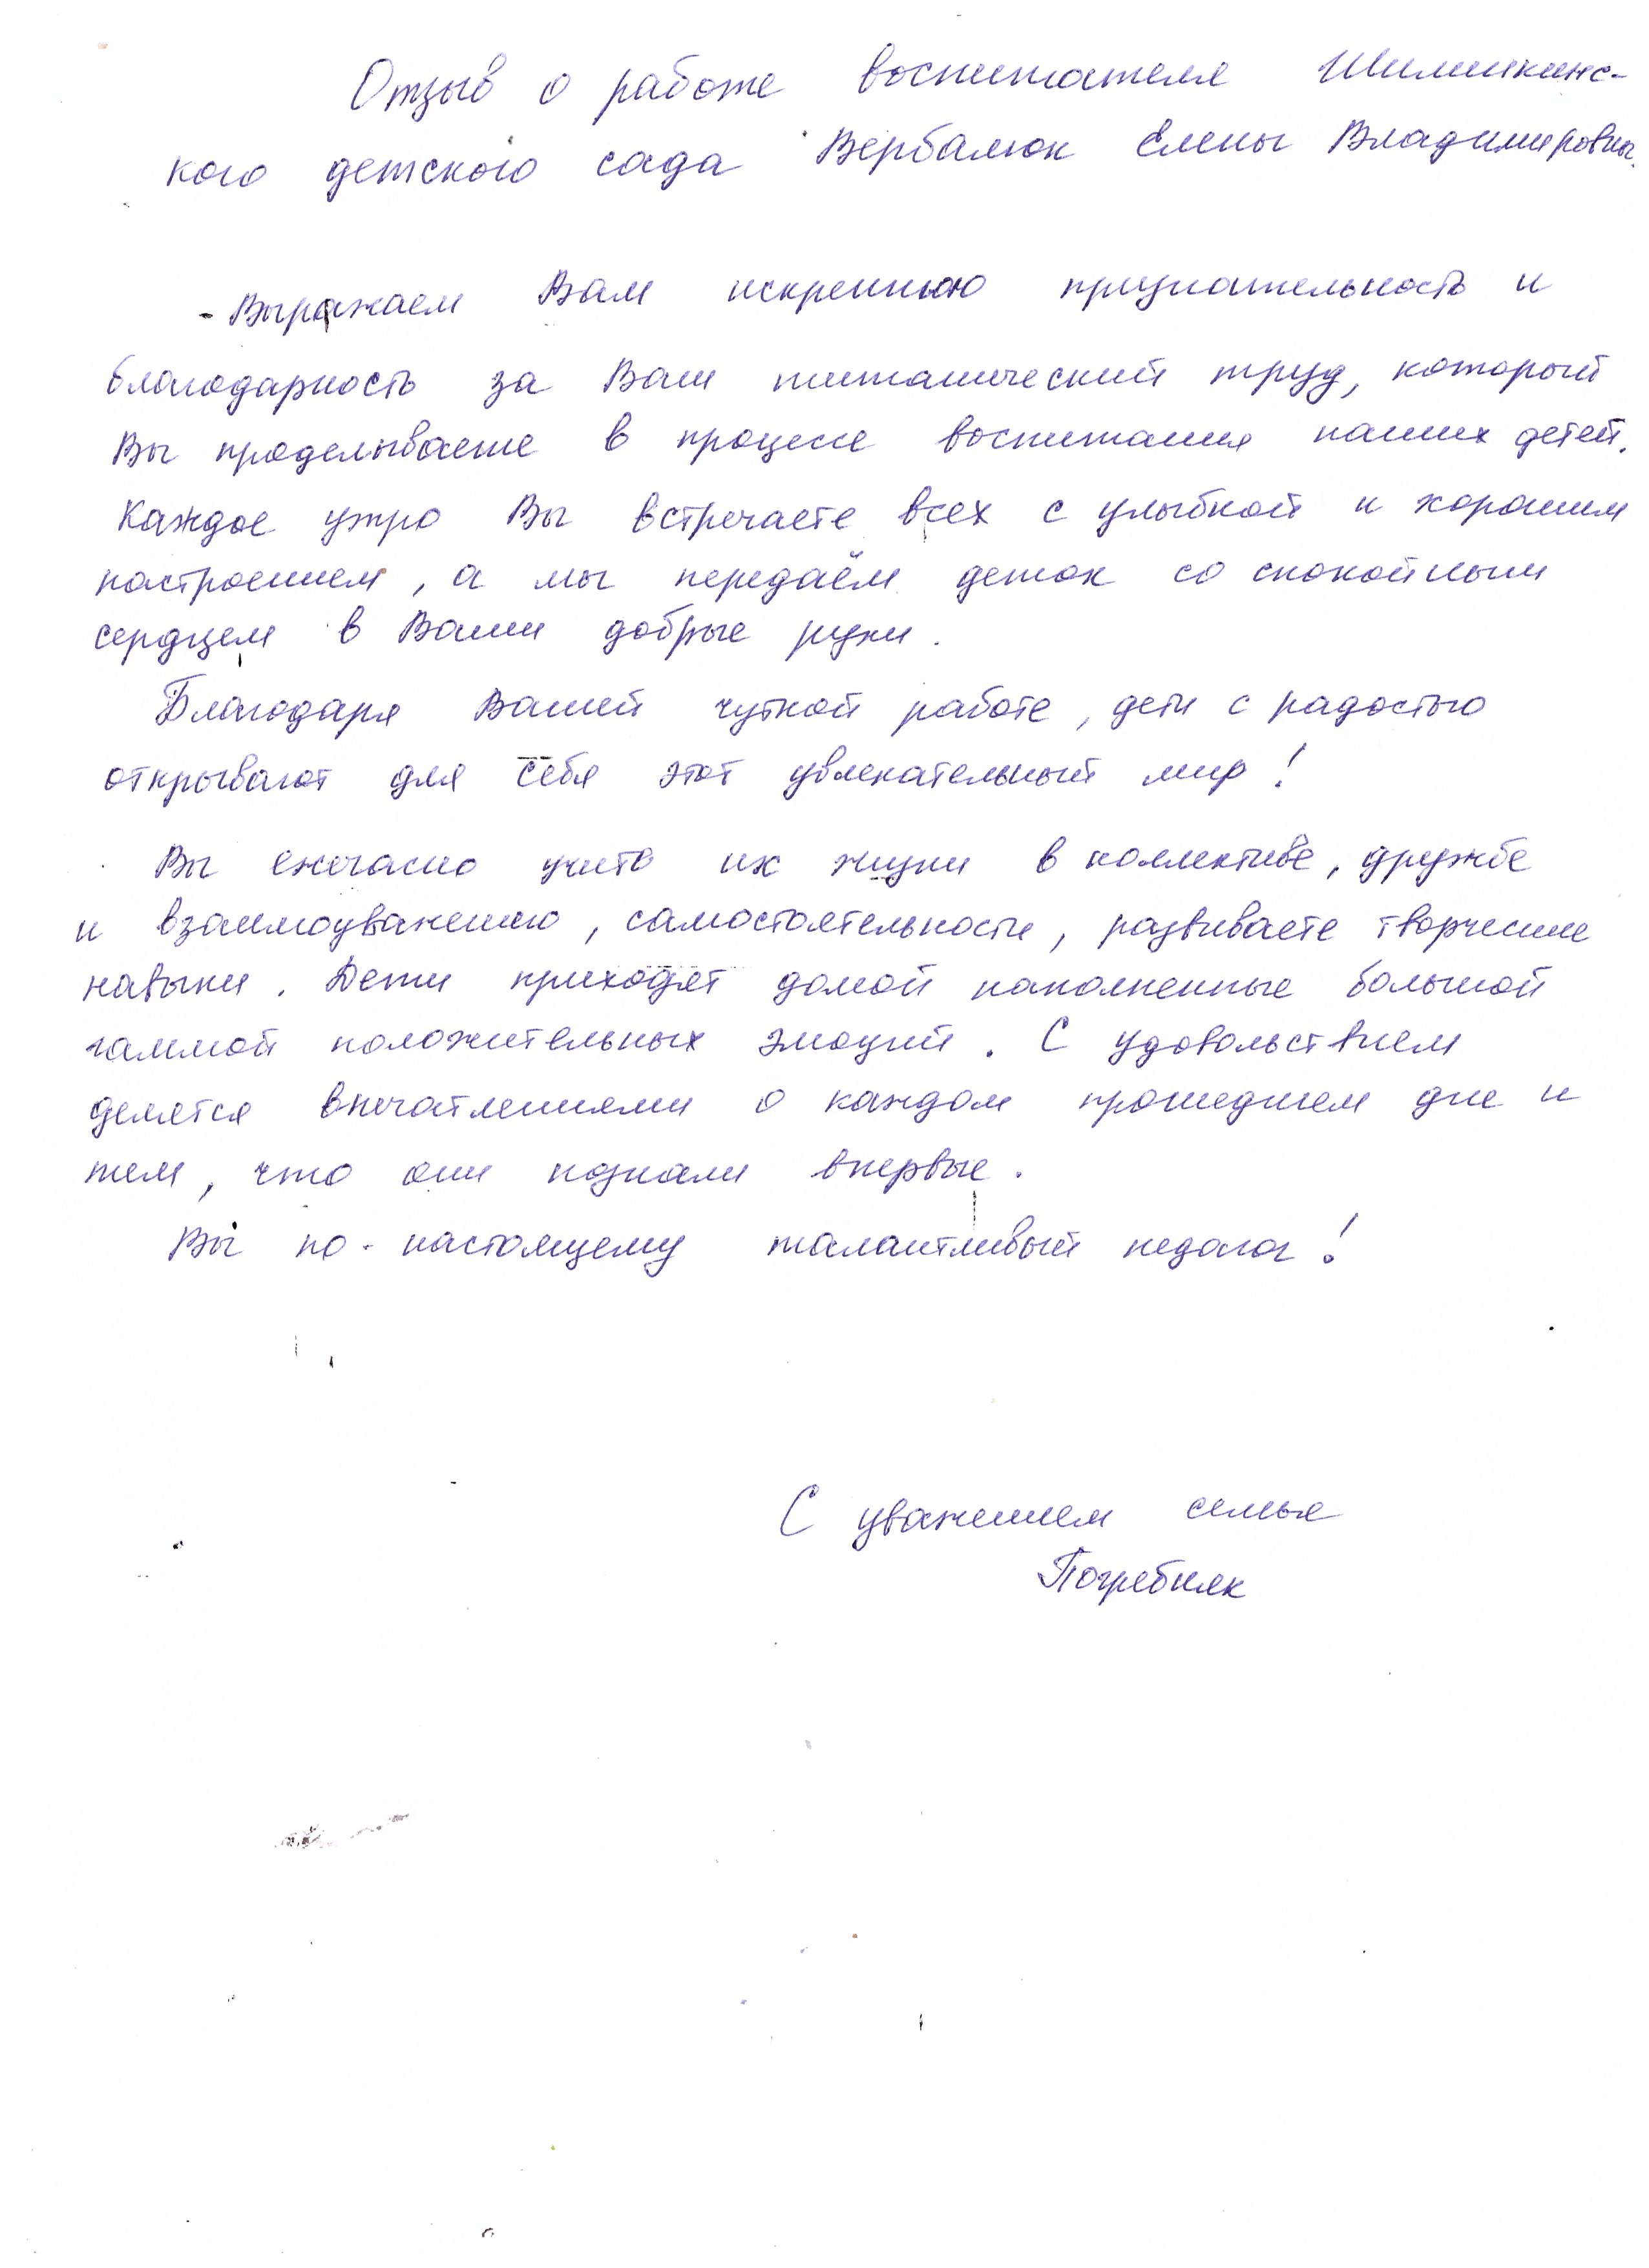 Отзыв о работе воспитателя Шимшикинс-
кого детского сада Вербалюк Елены Владимировны.
Выражаем Вам искреннюю признательность и
благодарность за Ваш титанический труд, который
Вы проделываете в процессе воспитания наших детей.
Каждое утро Вы встречаете всех с улыбкой и хорошим
настроением, а мы передаём деток со спокойным
сердцем в Ваши добрые руки.
Благодаря Вашей чуткой работе, дети с радостью
открывают для себя этот увлекательный мир!
Вы ежечасно учите их жизни в коллективе, дружбе
и взаимоуважению, самостоятельности, развиваете творческие
навыки. Дети приходят домой наполненные большой
гаммой положительных эмоций. С удовольствием
делятся впечатлениями о каждом прошедшем дне и
тем, что они познали впервые.
Вы по-настоящему талантливый педагог!
С уважением семья
Погребняк